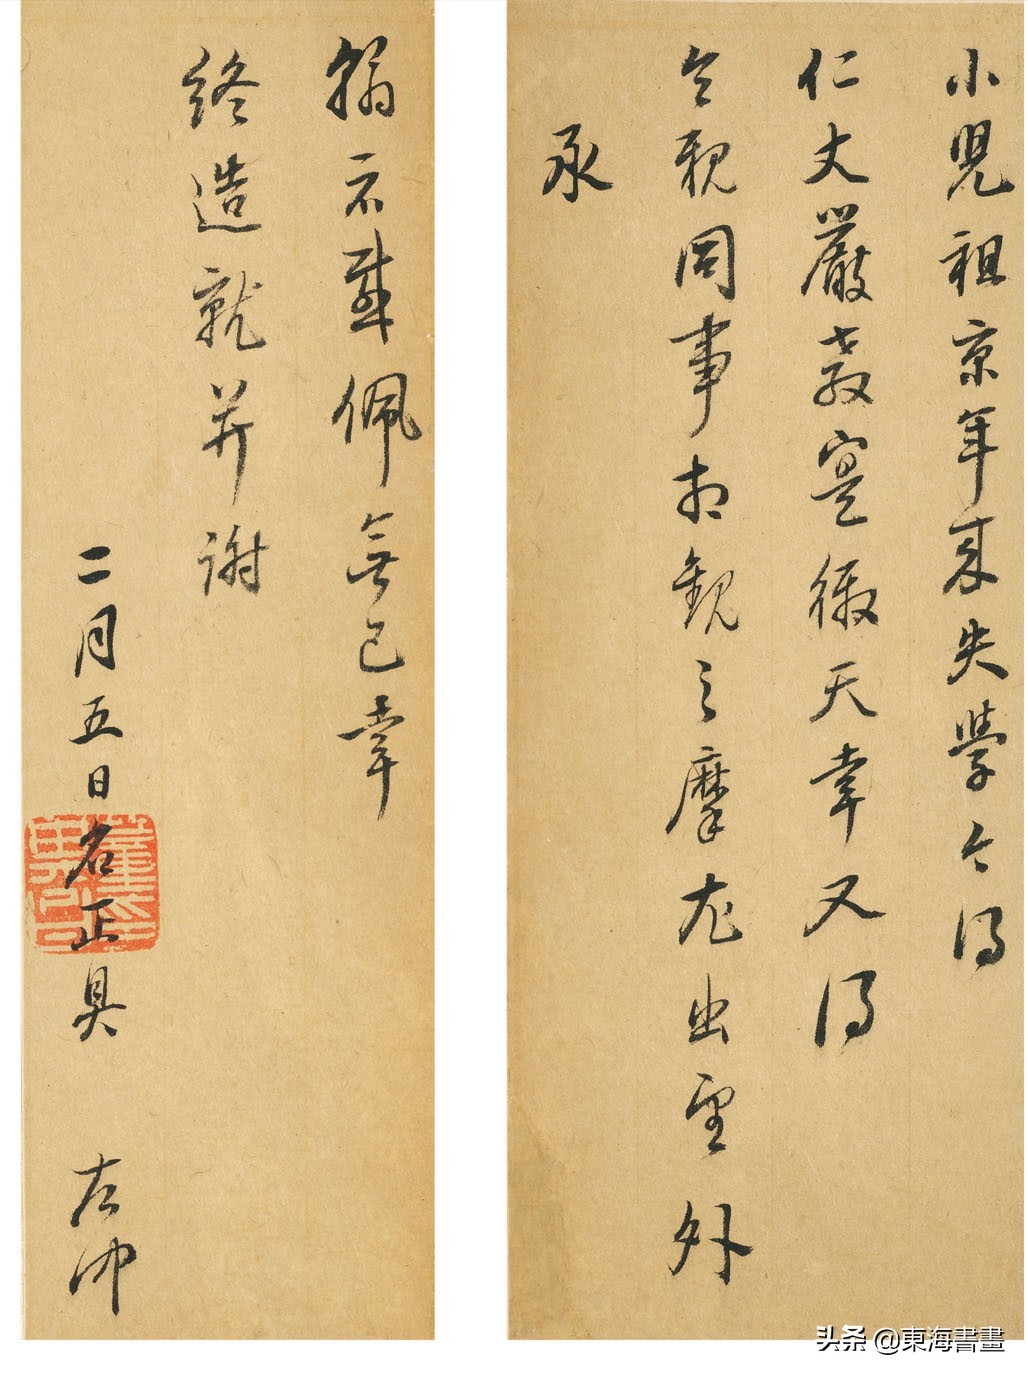 小兒祖京年來失學今得
仁丈嚴教寔徼天幸又得
令親同事相觀之摩尤出望外
承
翰示感佩無已幸
終造就并謝
二月五日名正具 左冲
頭条 @東海書畫